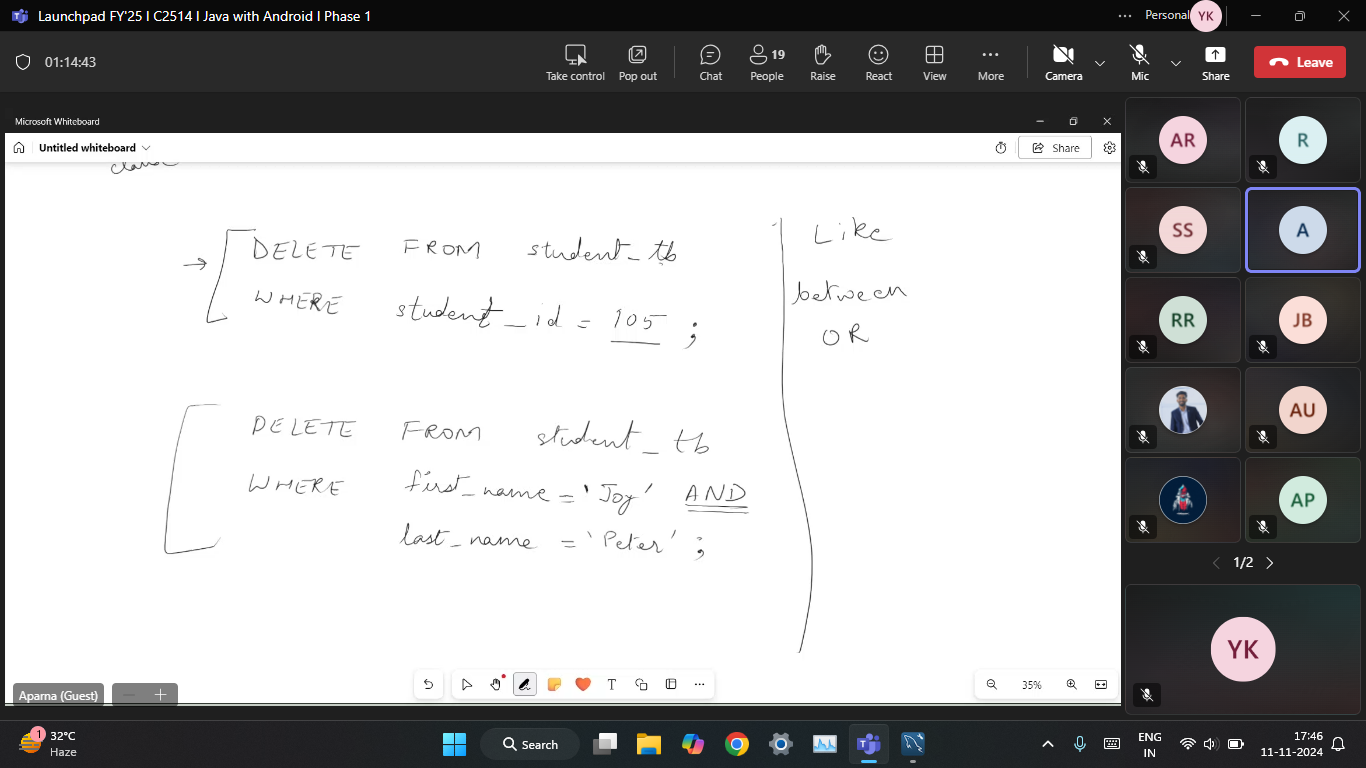 Launchpad FY'25 I C2514 I Java with Android I Phase 1
Personal
YK
01:14:43
Take control
Pop out
Chat
19
People
Raise
React
View
More
Camera
Mic
Share
Leave
Microsoft Whiteboard
Untitled whiteboard
Share
DELETE FROM student_tb
WHERE student_id = 105 ;
DELETE FROM student_tb
WHERE first_name = 'Joy' AND
last_name = 'Peter' ;
Like
between
OR
35%
Aparna (Guest)
AR
R
SS
A
RR
JB
AU
AP
1/2
YK
1
32°C
Haze
Search
ENG
IN
17:46
11-11-2024